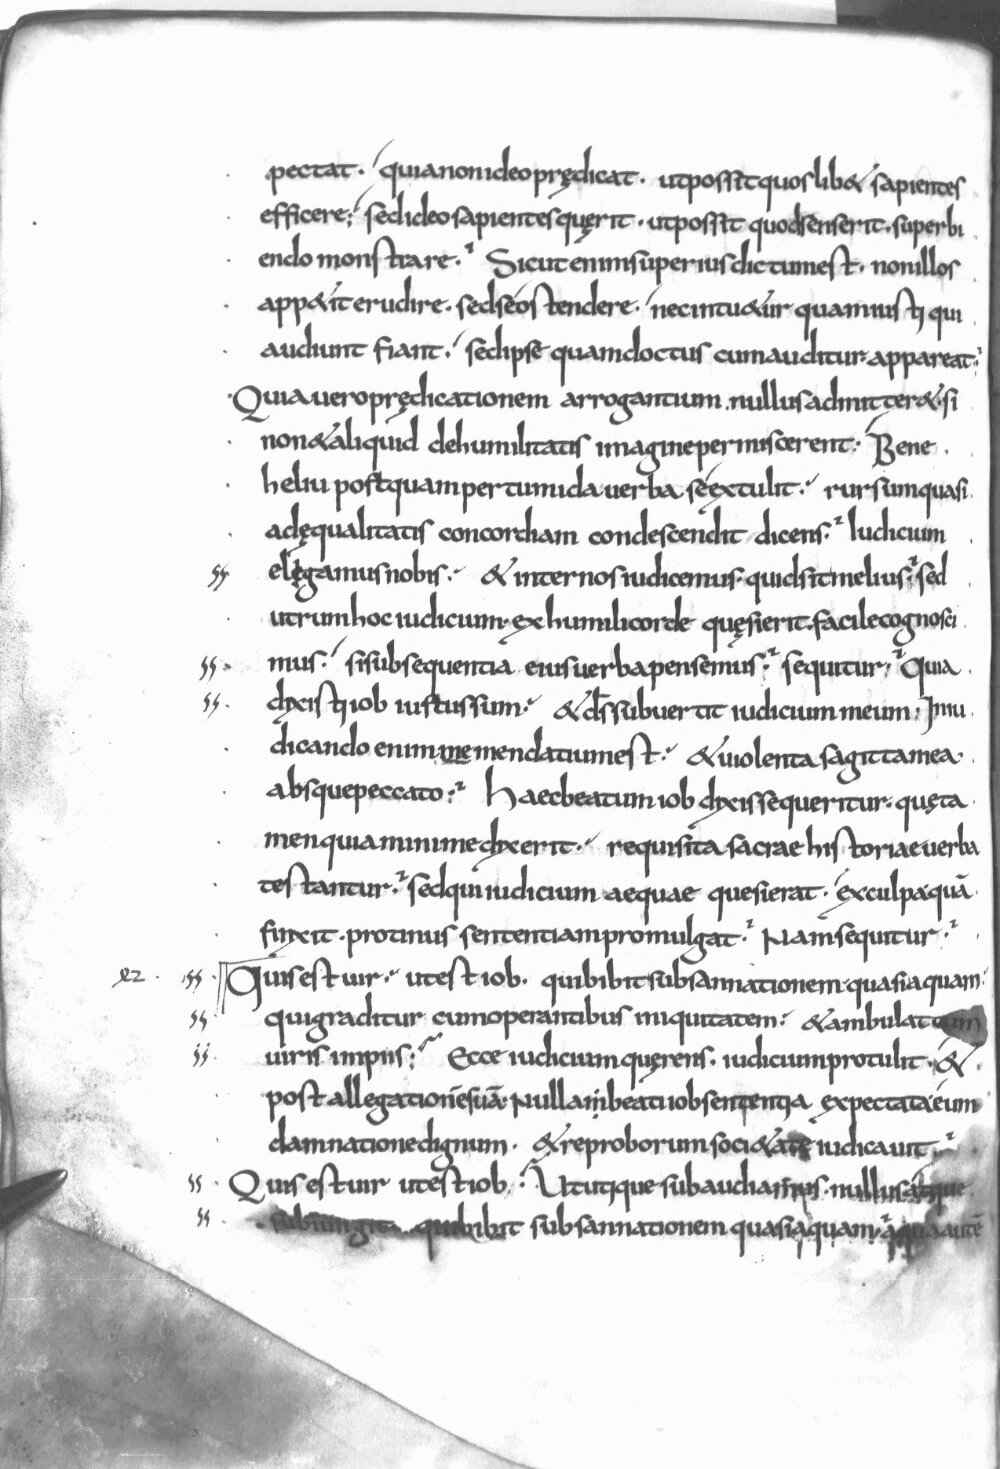 pectat. quia non ideo prędicat. ut possit quos lib& sapientes
efficere; sed ideo sapientes quęrit. ut possit quod senserit. superbi
endo monstrare. Sicut enim superius dictum est. non illos
app&it erudire. sed se ostendere. nec intu&ur quam iusti qui
audiunt fiant. sed ipse quam doctus cum auditur appareat.
Quia vero prędicationem arrogantium. nullus admitter& si
non & aliquid de humilitatis imagine permiscerent. Bene
heliu postquam per tumida verba se extulit. rursum quasi
ad ęqualitatis concordiam condescendit dicens. Iudicium
elęgamus nobis. & inter nos iudicemus. quid sit melius. sed
utrum hoc iudicium ex humili corde quęsierit. facile cognosci
mus. si subsequentia eius verba pensemus. sequitur. Quia
dixisti iob iustus sum. & ds̄ subvertit iudicium meum. In iu
dicando enim me mendatium est. & violenta sagitta mea
absque peccato. Haec beatum iob dixisse queritur. quę ta
men quia minime dixerit. requisita sacrae historiae verba
testantur. sed qui iudicium aequae quesierat. ex culpa quā
finxit. protinus sententiam promulgat. Nam sequitur.
ę2 · ss Quis est vir. ut est iob. qui bibit subsannationem quasi aquam.
qui graditur cum operantibus iniquitatem. & ambulat cum
viris impiis. Ecce iudicium quęrens. iudicium protulit. &
post allegationē suā. Nullam beati iob sententia expectata eum
damnatione dignum. & reproborum soci&ate iudicavit.
Quis est vir ut est iob. Ut utique subaudiamus. nullus atque
subiungit. qui bibit subsannationem quasi aquam. aqua autē